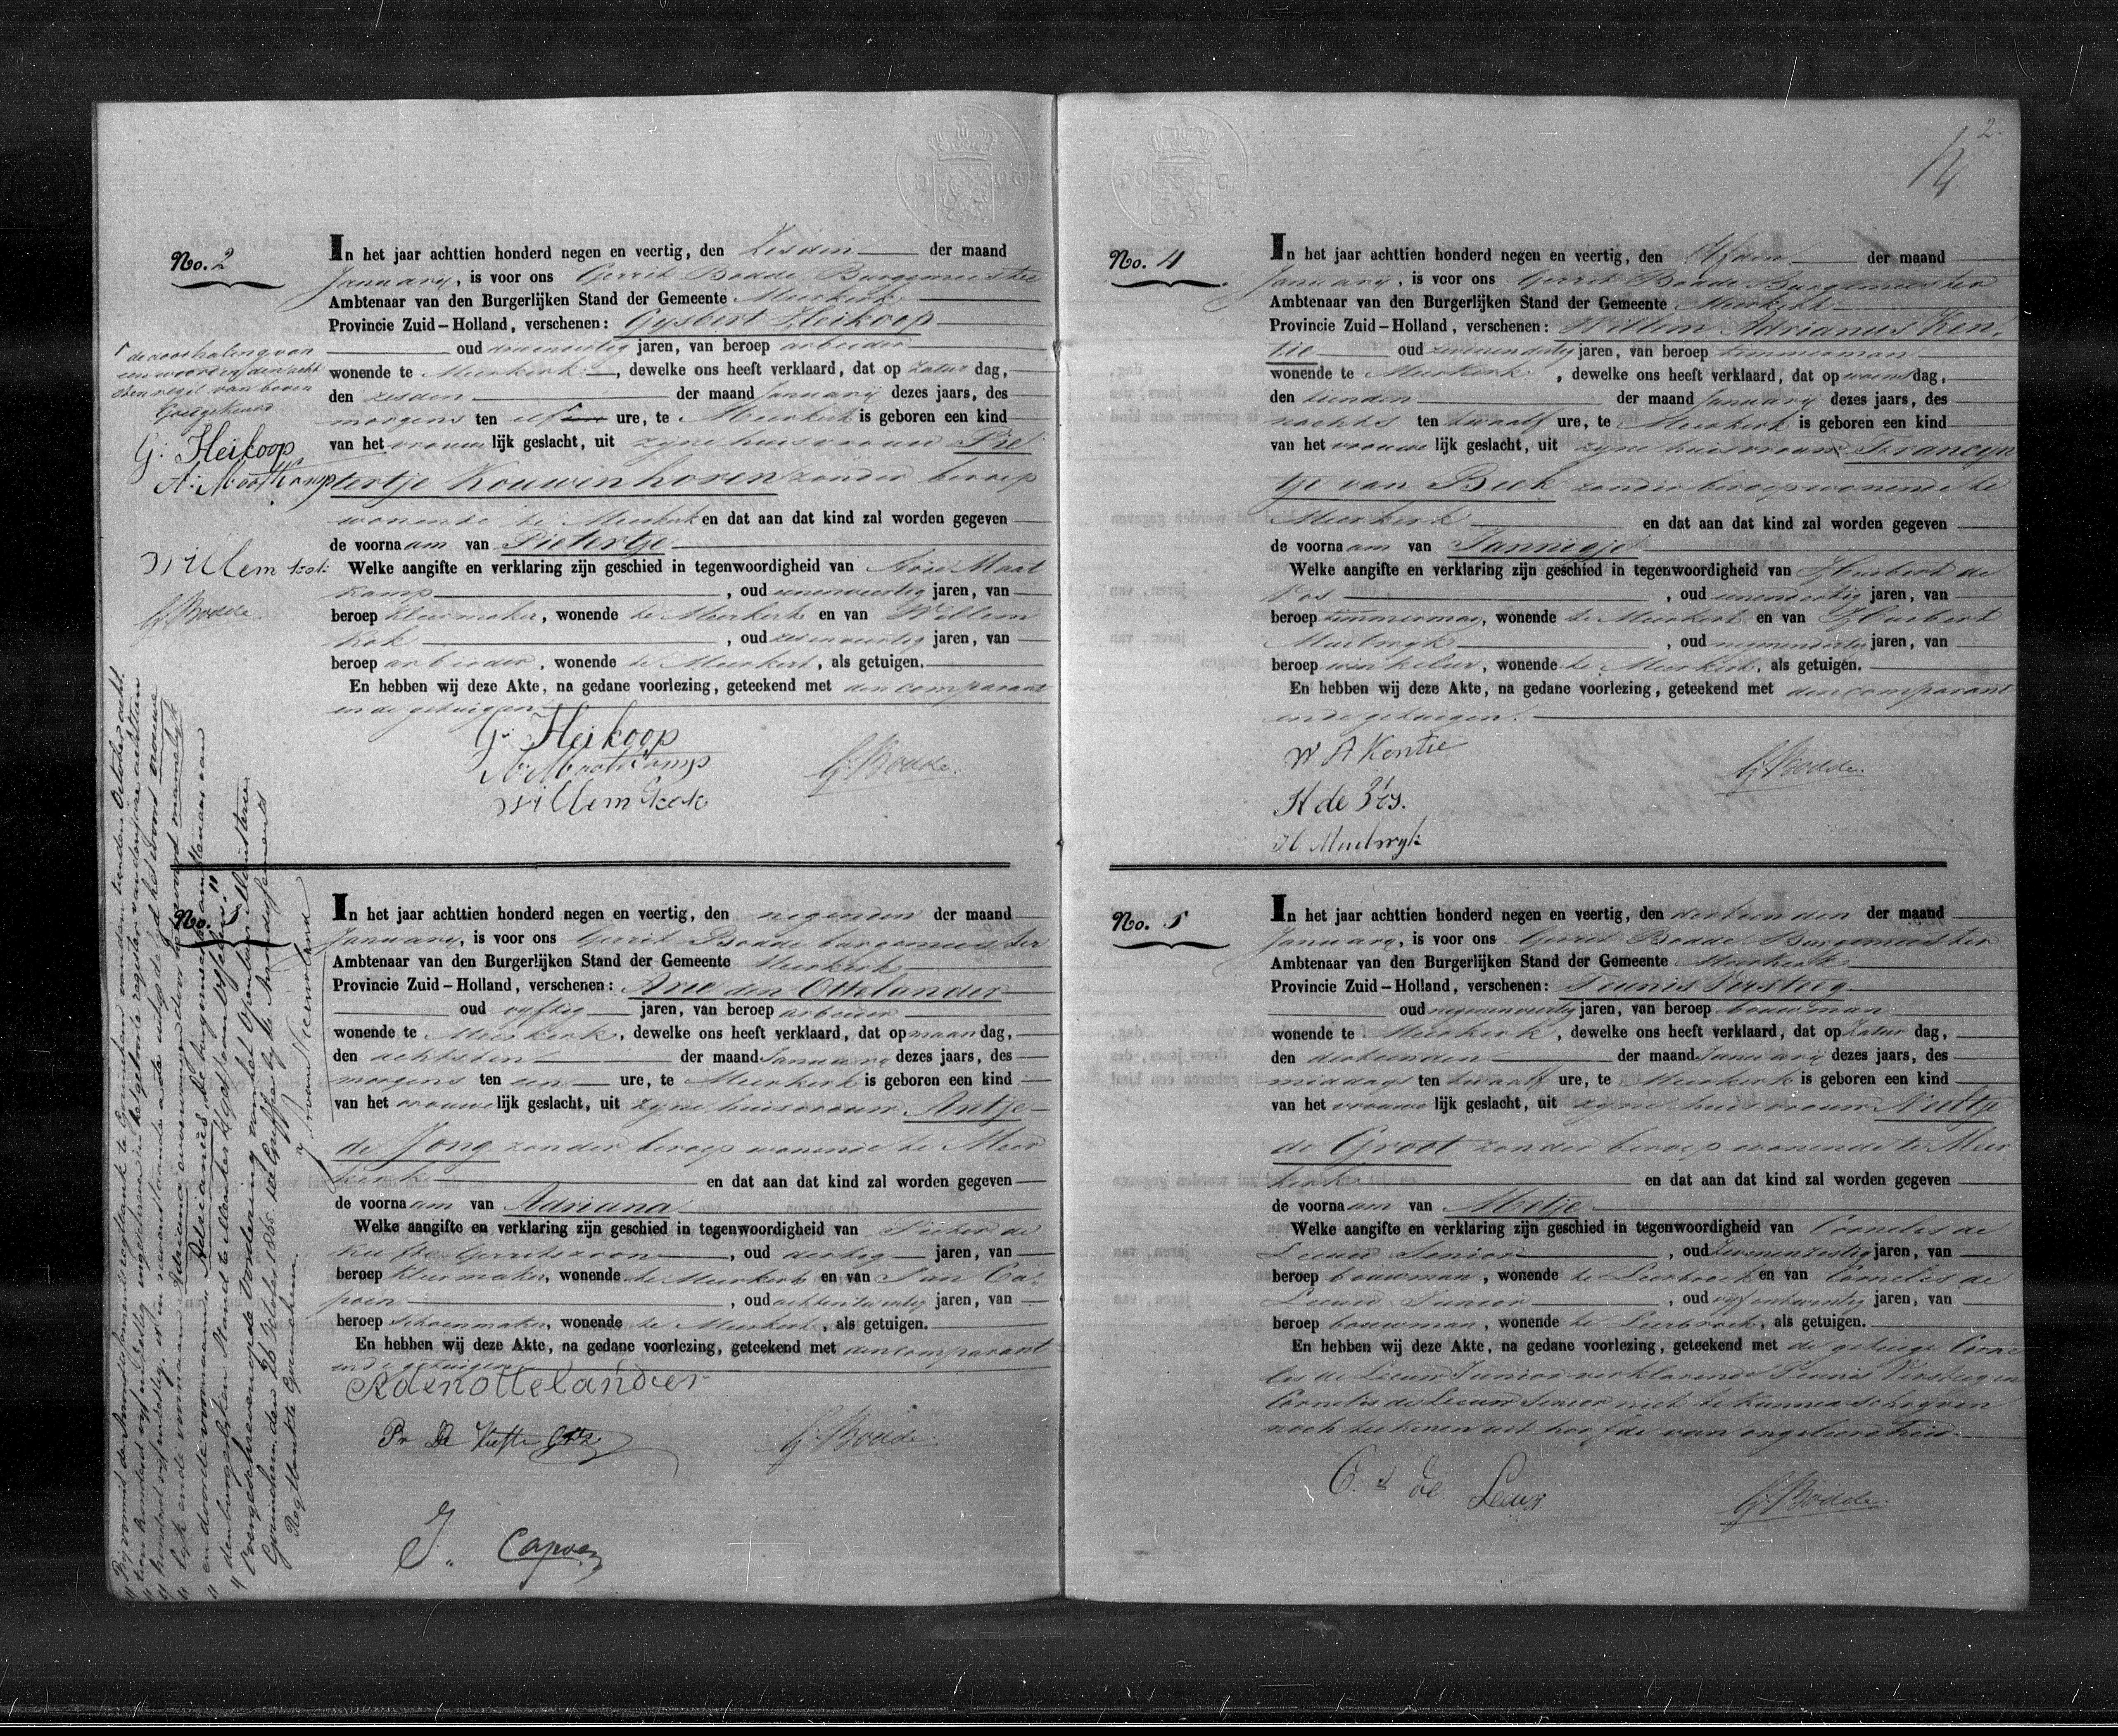 No. 2
In het jaar achttien honderd negen en veertig, den Zesden der maand
January, is voor ons Gerrit Bodde Burgemeester
Ambtenaar van den Burgerlijken Stand der Gemeente Meerkerk
Provincie Zuid-Holland, verschenen: Gysbert Heikoop
oud jaren, van beroep arbeider
wonende te Meerkerk, dewelke ons heeft verklaard, dat op Zatur dag,
den zesden der maand January dezes jaars, des
morgens ten elf ure, te Meerkerk is geboren een kind
van het vrouwe lijk geslacht, uit zyne huisvrouw Pie
tertje Kouwenhoven zonder beroep
wonende te Meerkerk en dat aan dat kind zal worden gegeven
de voornaam van Pietertje
Welke aangifte en verklaring zijn geschied in tegenwoordigheid van Arie Maat
kamp, oud jaren, van
beroep kleermaker, wonende te Meerkerk en van Willem
Kok, oud zesenveertig jaren, van
beroep arbeider, wonende te Meerkerk, als getuigen.
En hebben wij deze Akte, na gedane voorlezing, geteekend met den comparant
en de getuigen
G. Heikoop
A. Maatkamp
Willem Kok
G. Bodde.
de doorhaling van
een woord in den acht
sten regel van boven
Goedgekeurd
G. Heikoop
A. Maatkamp
Willem Kok
G. Bodde
No. 3
In het jaar achttien honderd negen en veertig, den negenden der maand
January, is voor ons Gerrit Bodde burgemeester
Ambtenaar van den Burgerlijken Stand der Gemeente Meerkerk
Provincie Zuid-Holland, verschenen: Arie den Ottelander
oud vyftig jaren, van beroep arbeider
wonende te Meerkerk, dewelke ons heeft verklaard, dat op maan dag,
den achtsten der maand January dezes jaars, des
morgens ten een ure, te Meerkerk is geboren een kind
van het vrouwe lijk geslacht, uit zyne huisvrouw Antje
de Jong zonder beroep wonende te Meer
kerk en dat aan dat kind zal worden gegeven
de voornaam van Adriana
Welke aangifte en verklaring zijn geschied in tegenwoordigheid van Pieter de
Kiefte Gerritszoon, oud dertig jaren, van
beroep kleermaker, wonende te Meerkerk en van Jan Ca
poen, oud achtentwintig jaren, van
beroep schoenmaker, wonende te Meerkerk, als getuigen.
En hebben wij deze Akte, na gedane voorlezing, geteekend met den comparant
en de getuigen
A den ottelander
Pr De Kiefte Gtz
G. Bodde.
J. Capoen
Bij vonnis der Arrondissements regtbank te Gorinchem van den tienden October acht
tien honderd vyf en zestig, ingeschreven in het geboorte register van den jare achttien
honderd vyf en zestig, is in nevenstaande acte uitgelegd het woord vrouwe
lyk ende voornaam Adriana en vervangen door het woord mannelyk
en door de voornaam Adrianus. De burgemeester ambtenaar van
den burgerlyken Stand te Meerkerk
Overgeschreven op de vordering van het Openbaar Ministerie
Gorinchem, den 26 October 1865. De Griffier by de Arrondissements
Regtbank te Gorinchem.
2
No. 4
In het jaar achttien honderd negen en veertig, den Elfden der maand
January, is voor ons Gerrit Bodde Burgemeester
Ambtenaar van den Burgerlijken Stand der Gemeente Meerkerk
Provincie Zuid-Holland, verschenen: Willem Adrianus Ken
tie oud jaren, van beroep timmerman
wonende te Meerkerk, dewelke ons heeft verklaard, dat op woens dag,
den tienden der maand January dezes jaars, des
nachts ten twaalf ure, te Meerkerk is geboren een kind
van het vrouwe lijk geslacht, uit zyne huisvrouw Francyn
tje van Beek zonder beroep wonende te
Meerkerk en dat aan dat kind zal worden gegeven
de voornaam van Jannigje
Welke aangifte en verklaring zijn geschied in tegenwoordigheid van Huibert de
Vos, oud jaren, van
beroep timmerman, wonende te Meerkerk en van Huibert
Muilwyk, oud jaren, van
beroep winkelier, wonende te Meerkerk, als getuigen.
En hebben wij deze Akte, na gedane voorlezing, geteekend met den comparant
en de getuigen.
W A Kentie
H de Vos.
H Muilwyk
G. Bodde.
No. 5
In het jaar achttien honderd negen en veertig, den dertienden der maand
January, is voor ons Gerrit Bodde Burgemeester
Ambtenaar van den Burgerlijken Stand der Gemeente Meerkerk
Provincie Zuid-Holland, verschenen: Teunis Versteeg
oud negenenveertig jaren, van beroep bouwman
wonende te Meerkerk, dewelke ons heeft verklaard, dat op Zatur dag,
den dertienden der maand January dezes jaars, des
middags ten twaalf ure, te Meerkerk is geboren een kind
van het vrouwe lijk geslacht, uit zyne huisvrouw Neeltje
de Groot zonder beroep wonende te Meer
kerk en dat aan dat kind zal worden gegeven
de voornaam van Metje
Welke aangifte en verklaring zijn geschied in tegenwoordigheid van Cornelis de
Leeuw Senior, oud jaren, van
beroep bouwman, wonende te Leerbroek en van Cornelis de
Leeuw Junior, oud vyfentwintig jaren, van
beroep bouwman, wonende te Leerbroek, als getuigen.
En hebben wij deze Akte, na gedane voorlezing, geteekend met de getuige Corne
lis de Leeuw Junior verklarende Teunis Versteeg en
Cornelis de Leeuw Senior niet te kunnen schryven
noch teekenen uit hoofde van ongeleerdheid.
Cs de Leeuw
G. Bodde.